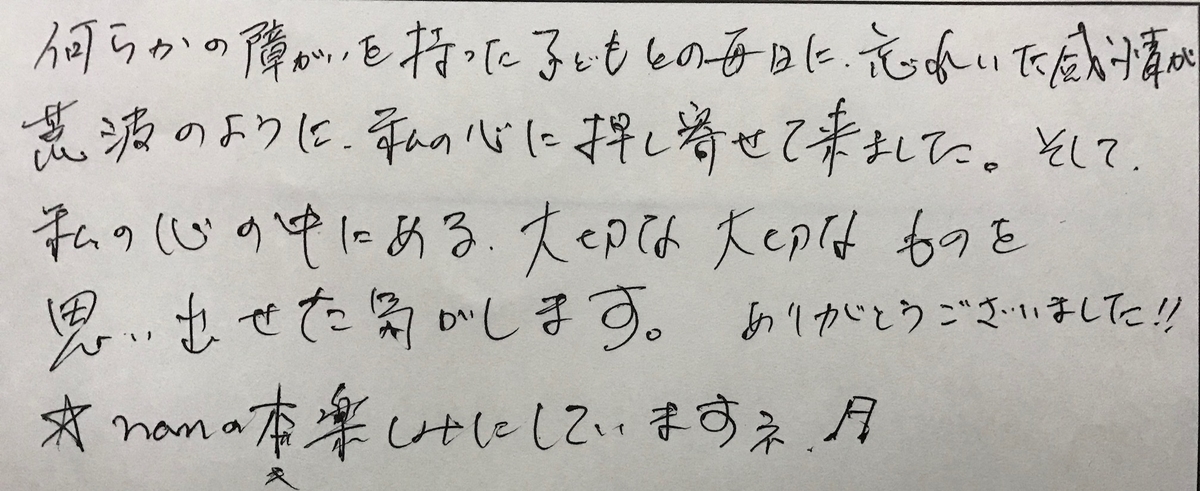 何らかの障がいを持った子どもとの毎日に、忘れいた感情が
荒波のように、私の心に押し寄せて来ました。そして、
私の心の中にある、大切な大切なものを
思い出せた気がします。 ありがとうございました!!
☆nanの本楽しみにしていますネ。